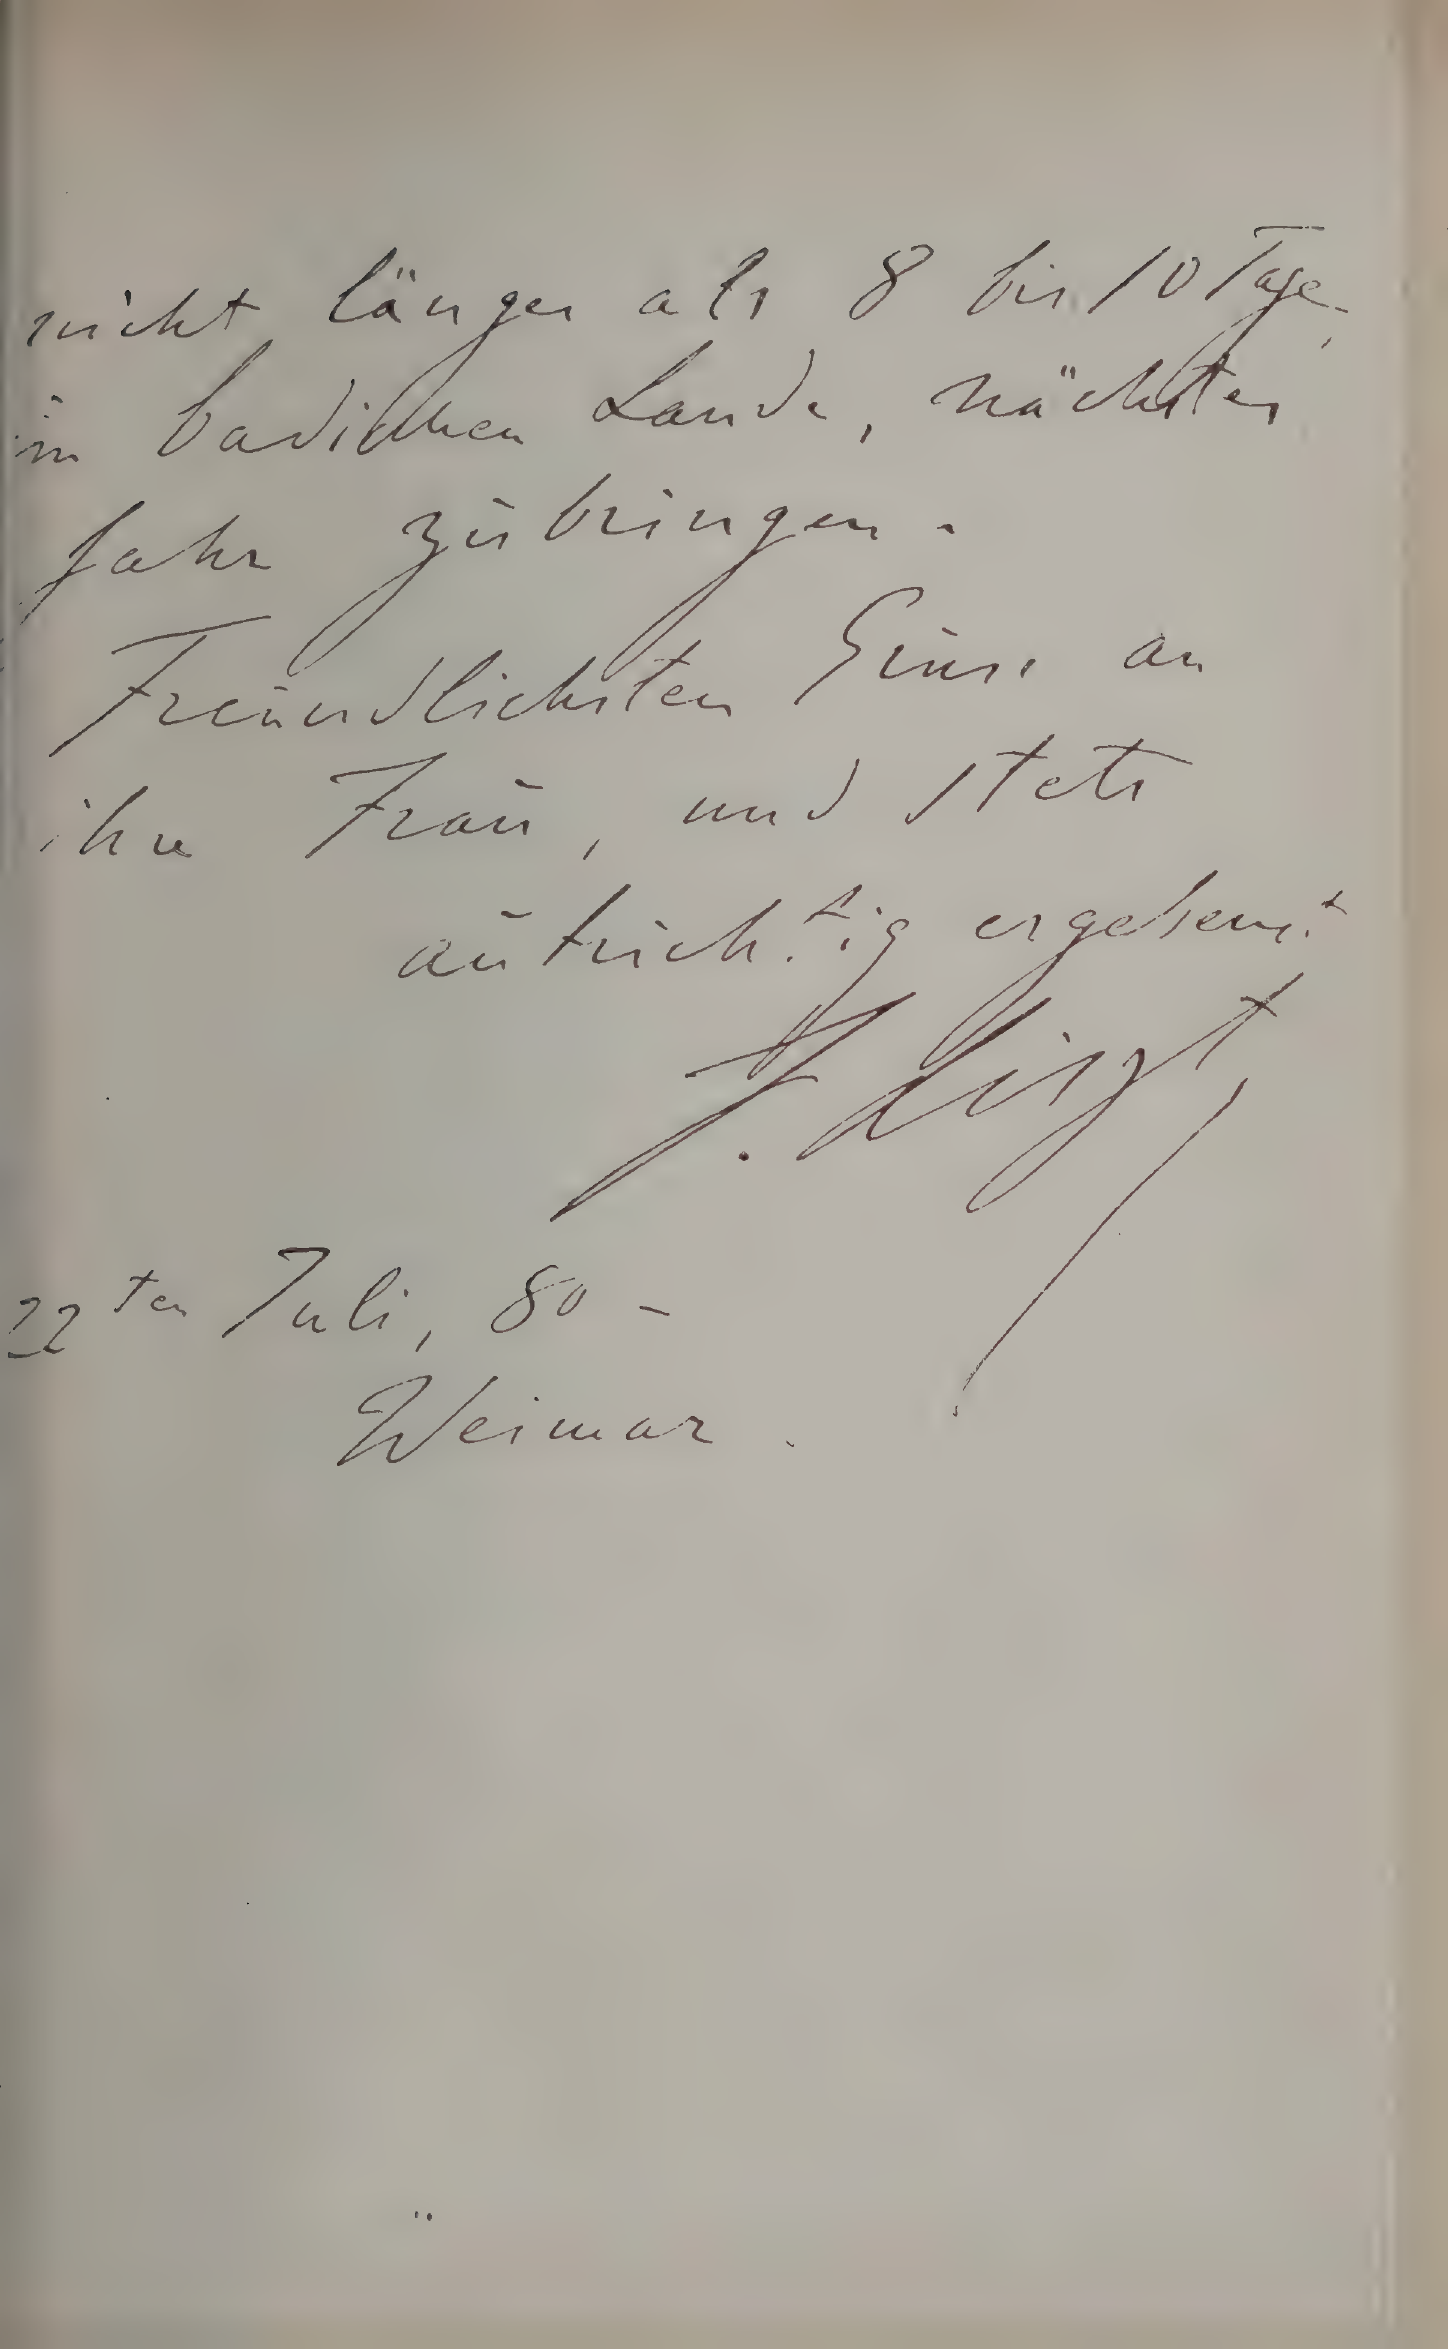 nicht länger als 8 bis 10 Tage,
im badischen Lande, nächstes
Jahr zubringen.
Freundlichsten Gruss an
ihre Frau, und stets
aufrichtig ergebenst
F. Liszt
22ten Juli, 80 –
Weimar.